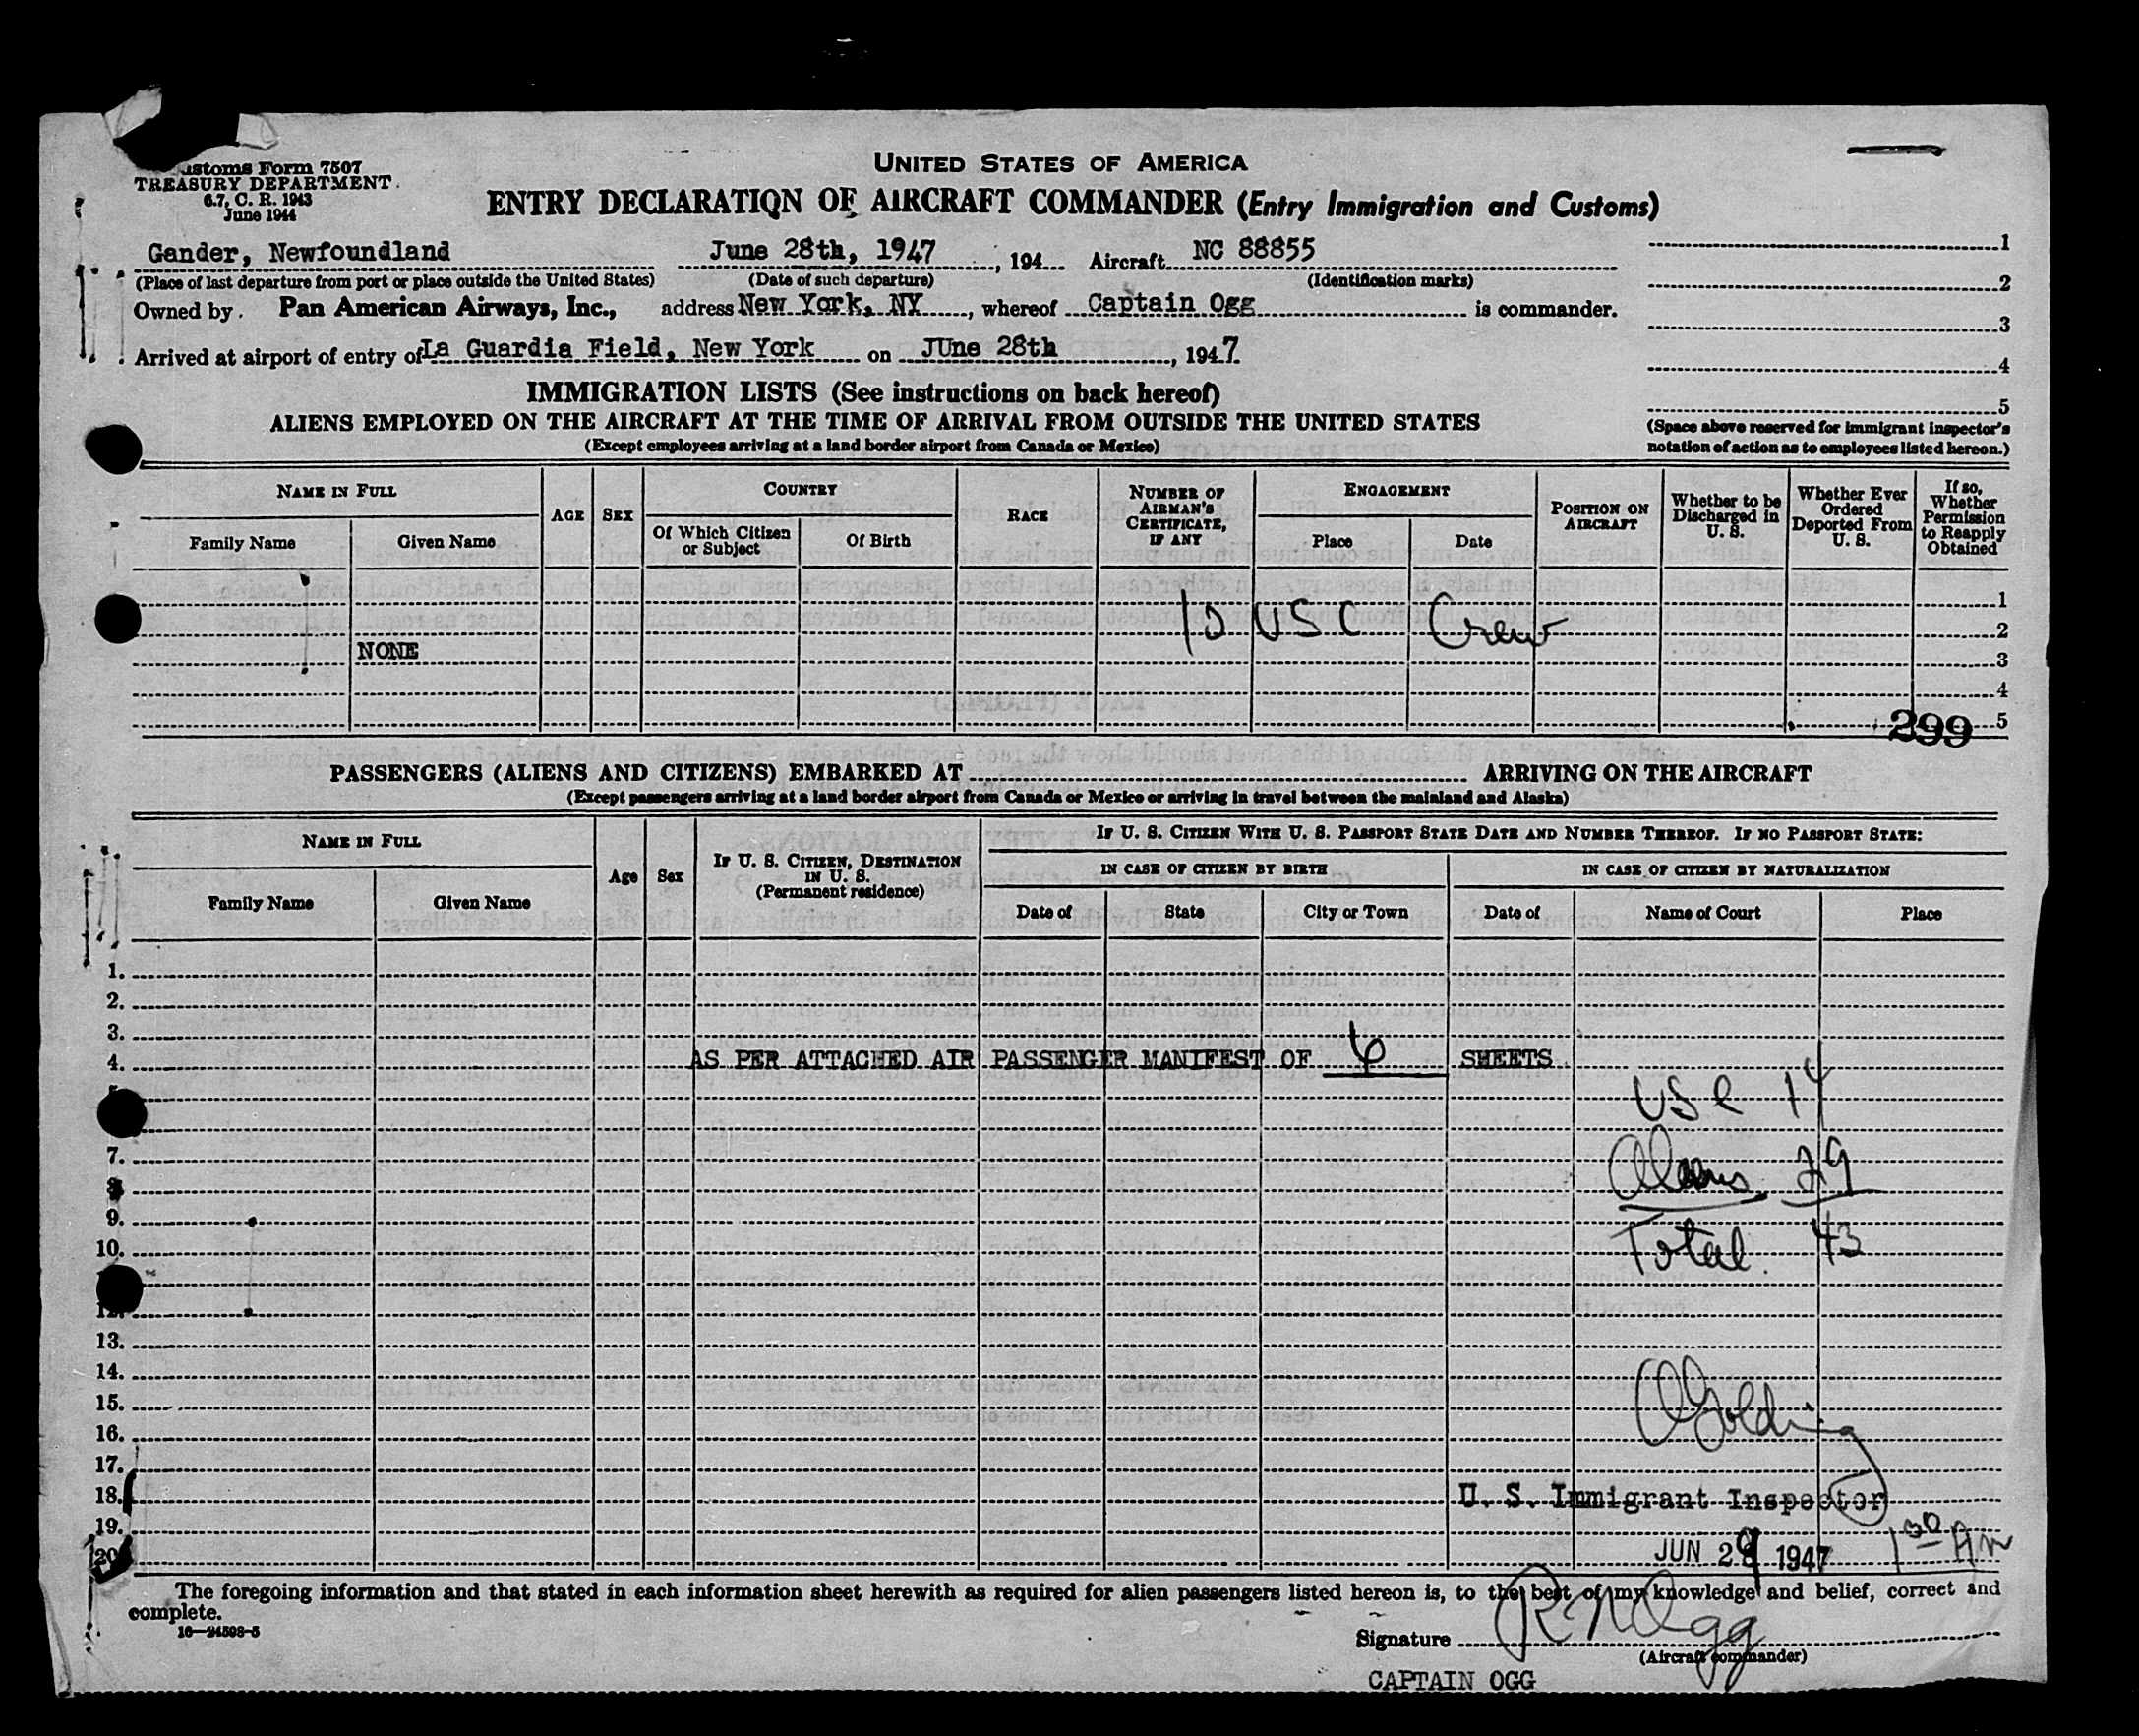 UNITED STATES OF AMERICA
ustoms Form 7507
TREASURY DEPARTMENT
6.7, C. R. 1943
June 1944
ENTRY DECLARATION OF AIRCRAFT COMMANDER (Entry Immigration and Customs)
Gander, Newfoundland June 28th, 1947, 194 Aircraft NC 88855
(Place of last departure from port or place outside the United States) (Date of such departure) (Identification marks)
Owned by Pan American Airways, Inc., address New York, NY, whereof Captain Ogg is commander.
Arrived at airport of entry of La Guardia Field, New York on JUne 28th, 1947.
1
2
3
4
5
(Space above reserved for immigrant inspector's
notation of action as to employees listed hereon.)
IMMIGRATION LISTS (See instructions on back hereof)
ALIENS EMPLOYED ON THE AIRCRAFT AT THE TIME OF ARRIVAL FROM OUTSIDE THE UNITED STATES
(Except employees arriving at a land border airport from Canada or Mexico)
NAME IN FULL
Family Name
Given Name
AGE
SEX
COUNTRY
Of Which Citizen or Subject
Of Birth
RACE
NUMBER OF AIRMAN'S CERTIFICATE, IF ANY
ENGAGEMENT
Place
Date
POSITION ON AIRCRAFT
Whether to be Discharged in U. S.
Whether Ever Ordered Deported From U. S.
If so, Whether Permission to Reapply Obtained
1
10 USC Crew 2
NONE 3
4
299 5
PASSENGERS (ALIENS AND CITIZENS) EMBARKED AT ARRIVING ON THE AIRCRAFT
(Except passengers arriving at a land border airport from Canada or Mexico or arriving in travel between the mainland and Alaska)
NAME IN FULL
Family Name
Given Name
Age
Sex
IF U. S. CITIZEN, DESTINATION IN U. S.
(Permanent residence)
IF U. S. CITIZEN WITH U. S. PASSPORT STATE DATE AND NUMBER THEREOF. IF NO PASSPORT STATE:
IN CASE OF CITIZEN BY BIRTH
Date of
State
City or Town
IN CASE OF CITIZEN BY NATURALIZATION
Date of
Name of Court
Place
1.
2.
3.
4. AS PER ATTACHED AIR PASSENGER MANIFEST OF 6 SHEETS
USC 14
7. Aliens 29
8.
9.
10. Total 43
12.
13.
14.
15. Golding
16.
17.
18. U. S. Immigrant Inspector
19.
20. JUN 29 1947 1 30 AM
The foregoing information and that stated in each information sheet herewith as required for alien passengers listed hereon is, to the best of my knowledge and belief, correct and
complete.
16—24598-5
Signature R N Ogg
(Aircraft commander)
CAPTAIN OGG